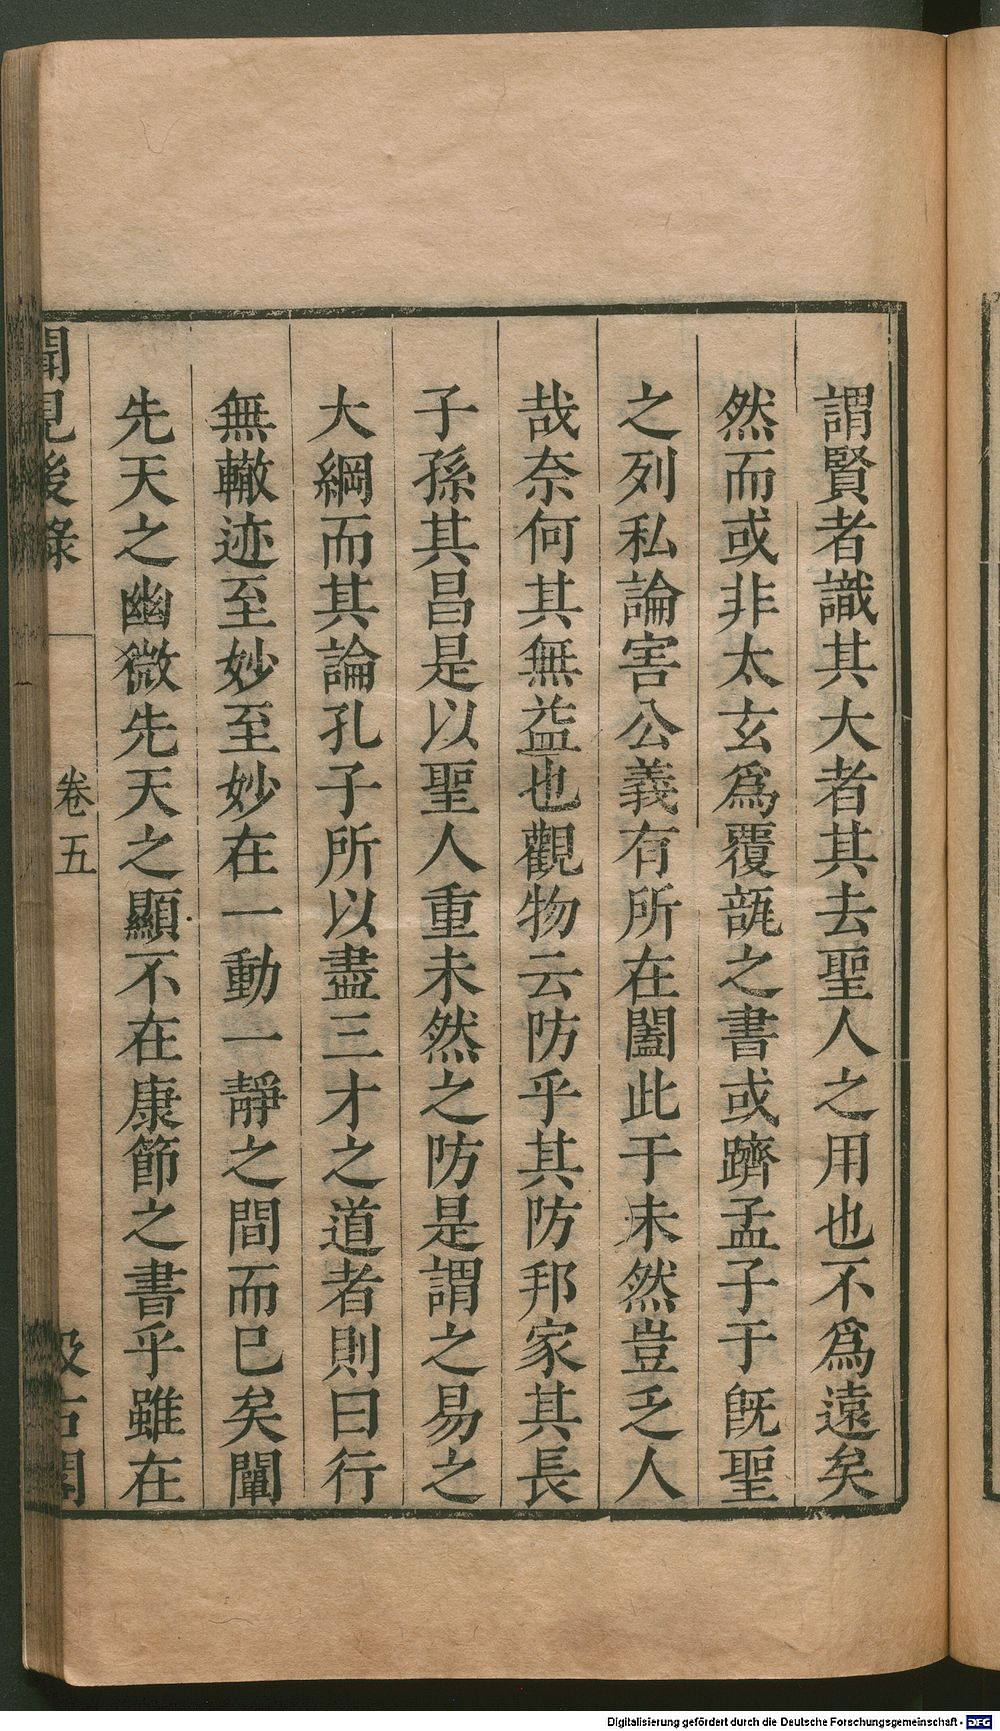 謂賢者識其大者其去聖人之用也不爲遠矣
然而或非太玄爲覆瓿之書或躋孟子于旣聖
之列私論害公義有所在闔此于未然豈乏人
哉奈何其無益也觀物云防乎其防邦家其長
子孫其昌是以聖人重未然之防是謂之易之
大綱而其論孔子所以盡三才之道者則曰行
無轍迹至妙至妙在一動一靜之間而巳矣闡
先天之幽微先天之顯不在康節之書乎雖在
聞見後錄
卷五
汲古閣
Digitalisierung gefördert durch die Deutsche Forschungsgemeinschaft - DFG